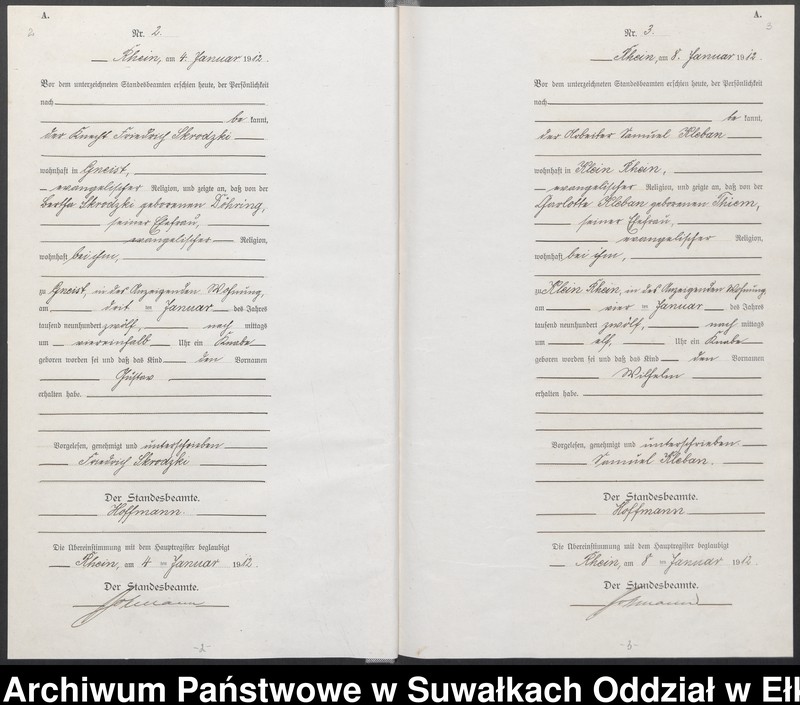 A.
2
Nr. 2.
Rhein, am 4. Januar 1912.
Vor dem unterzeichneten Standesbeamten erschien heute, der Persönlichkeit
nach
be kannt,
der Knecht Friedrich Skrodzki
wohnhaft in Gneist,
evangelischer Religion, und zeigte an, daß von der
Bertha Skrodzki geborenen Döhring,
seiner Ehefrau,
evangelischer Religion,
wohnhaft bei ihm,
zu Gneist, in des Anzeigenden Wohnung,
am drei ten Januar des Jahres
tausend neunhundert zwölf, nach mittags
um viereinhalb Uhr ein Knabe
geboren worden sei und daß das Kind den Vornamen
Gustav
erhalten habe.
Vorgelesen, genehmigt und unterschrieben
Friedrich Skrodzki
Der Standesbeamte.
Hoffmann.
Die Übereinstimmung mit dem Hauptregister beglaubigt
Rhein, am 4 ten Januar 1912.
Der Standesbeamte.
Hofmann
-2-
A.
3
Nr. 3.
Rhein, am 8. Januar 1912.
Vor dem unterzeichneten Standesbeamten erschien heute, der Persönlichkeit
nach
be kannt,
der Arbeiter Samuel Kleban
wohnhaft in Klein Rhein,
evangelischer Religion, und zeigte an, daß von der
Charlotte Kleban geborenen Thiem,
seiner Ehefrau,
evangelischer Religion,
wohnhaft bei ihm,
zu Klein Rhein, in des Anzeigenden Wohnung
am vier ten Januar des Jahres
tausend neunhundert zwölf, nach mittags
um elf, Uhr ein Knabe
geboren worden sei und daß das Kind den Vornamen
Wilhelm
erhalten habe.
Vorgelesen, genehmigt und unterschrieben
Samuel Kleban.
Der Standesbeamte.
Hoffmann
Die Übereinstimmung mit dem Hauptregister beglaubigt
Rhein, am 8 ten Januar 1912
Der Standesbeamte.
Hofmann
-3-
Archiwum Państwowe w Suwałkach Oddział w Ełk